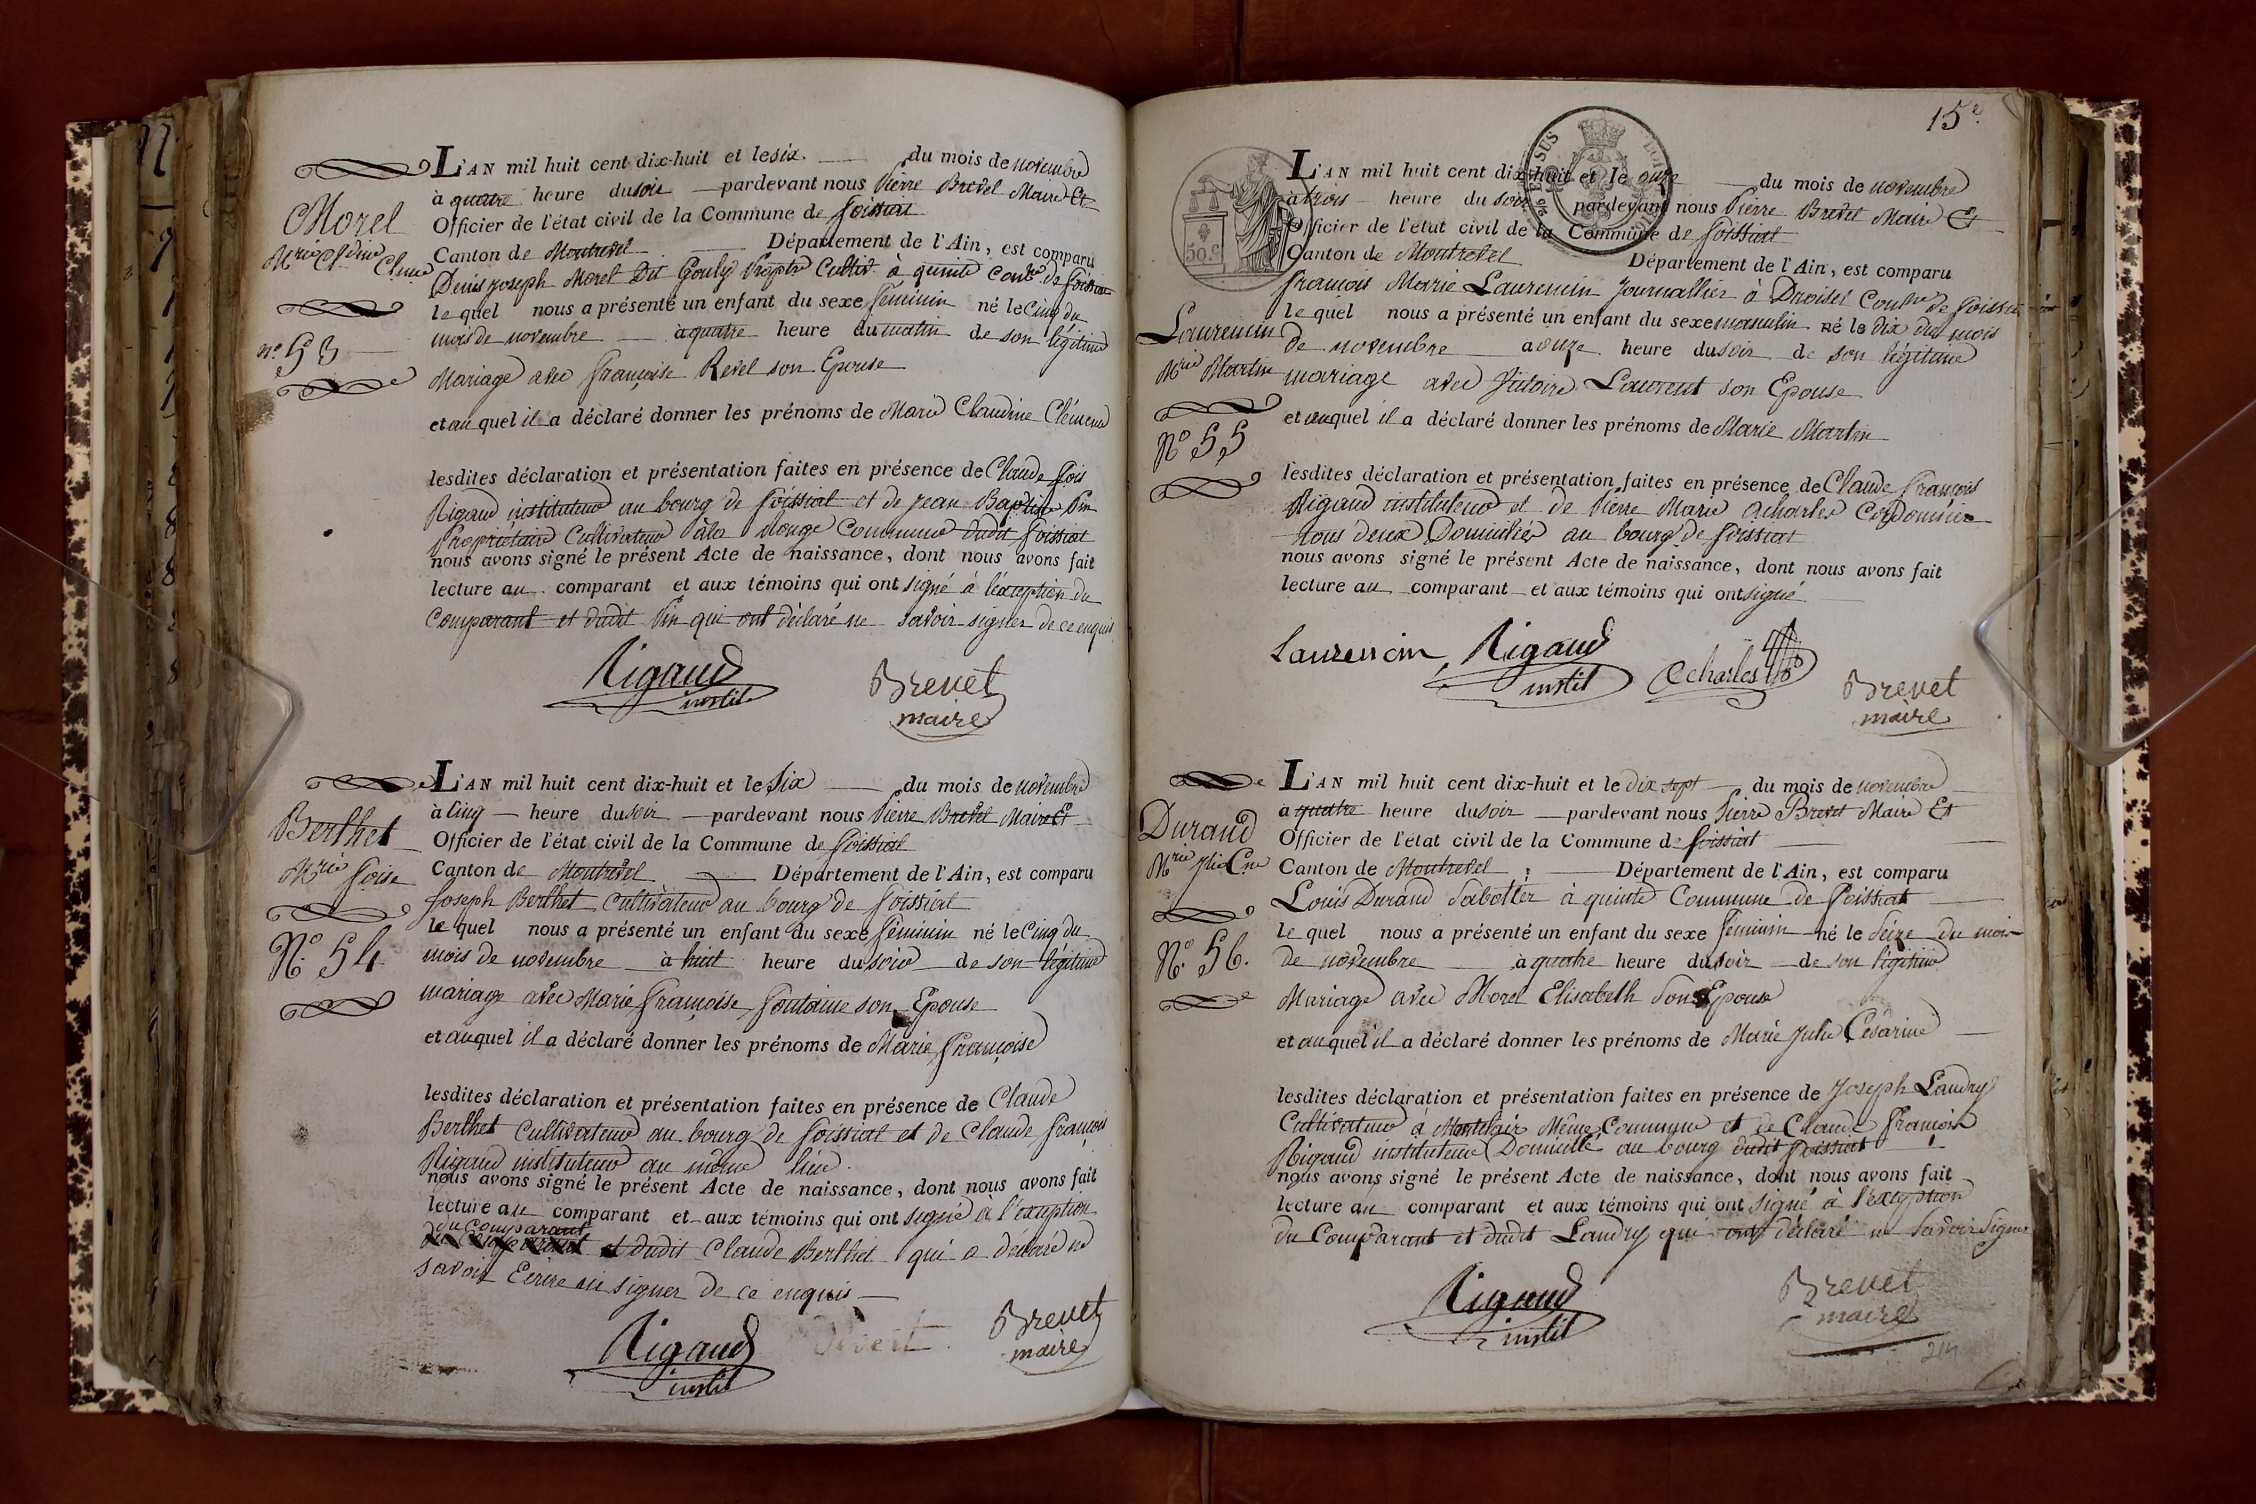 L'AN mil huit cent dix-huit et le six. du mois de novembre
à quatre heure du soir pardevant nous Pierre Brevet Maire Et
Officier de l'état civil de la Commune de foissiat
Canton de Montrevel Département de l'Ain, est comparu
Denis joseph Morel Dit Gouly Cultiv. à quinte Com.ne de foissiat
le quel nous a présenté un enfant du sexe féminin né le Cinq du
mois de novembre à quatre heure du matin de son légitime
Mariage avec françoise Revel son Epouse
et au quel il a déclaré donner les prénoms de Marie Claudine Clémence
lesdites déclaration et présentation faites en présence de Claude fois
Rigaud instituteur au bourg de foissiat et de jean Baptiste Pin
Propriétaire Cultivateur à la Rouge Commune dudit foissiat
nous avons signé le présent Acte de naissance, dont nous avons fait
lecture au comparant et aux témoins qui ont signé à l'exception du
Comparant et dudit Pin qui ont déclaré ne savoir signer de ce enquis
Rigaud
instit.
Brevet
maire
Morel
Mrie Cldine Clmce
n.o 53
L'AN mil huit cent dix-huit et le Six du mois de novembre
à Cinq heure du soir pardevant nous Pierre Brevet Maire Et
Officier de l'état civil de la Commune de foissiat
Canton de Montrevel Département de l'Ain, est comparu
Joseph Berthet Cultivateur au bourg de foissiat
le quel nous a présenté un enfant du sexe féminin né le Cinq du
mois de novembre à huit heure du soir de son légitime
mariage avec Marie françoise fontaine son Epouse
et auquel il a déclaré donner les prénoms de Marie françoise
lesdites déclaration et présentation faites en présence de Claude
Berthet Cultivateur au bourg de foissiat et de Claude françois
Rigaud instituteur au même lieu.
nous avons signé le présent Acte de naissance, dont nous avons fait
lecture au comparant et aux témoins qui ont signé à l'exception
du comparant
et dudit Claude Berthet qui a déclaré ne
savoir Ecrire ni signer de ce enquis
Rigaud
instit
Brevet
maire
Berthet
Mrie foise
N.o 54
15e.
L'AN mil huit cent dix-huit et le onze du mois de novembre
à trois heure du soir pardevant nous Pierre Brevet Maire Et
Officier de l'état civil de la Commune de foissiat
Canton de Montrevel Département de l'Ain, est comparu
françois Marie Laurencin Journallier à Droisel Com.ne de foissiat
le quel nous a présenté un enfant du sexe masculin né le dix du mois
de novembre à onze heure du soir de son légitime
mariage avec Victoire Laurent son Epouse
et auquel il a déclaré donner les prénoms de Marie Martin
lesdites déclaration et présentation faites en présence de Claude françois
Rigaud instituteur et de Pierre Marie Acharles Cordonnier
tous deux Domiciliés au bourg de foissiat
nous avons signé le présent Acte de naissance, dont nous avons fait
lecture au comparant et aux témoins qui ont signé
Laurencin
Rigaud
instit
Acharles
Brevet
maire
50 C.
Laurencin
Mrie Martin
N.o 55
L'AN mil huit cent dix-huit et le dix sept du mois de novembre
à quatre heure du soir pardevant nous Pierre Brevet Maire Et
Officier de l'état civil de la Commune de foissiat
Canton de Montrevel Département de l'Ain, est comparu
Louis Durand Sabottier à quinte Commune de foissiat
le quel nous a présenté un enfant du sexe feminin né le Seize du mois
de novembre à quatre heure du soir de son légitime
Mariage avec Morel Elisabeth Son Epouse
et auquel il a déclaré donner les prénoms de Marie Julie Césarine
lesdites déclaration et présentation faites en présence de Joseph Landry
Cultivateur à Montclair Même Commune et de Claude François
Rigaud instituteur Domicilié au bourg dudit foissiat
nous avons signé le présent Acte de naissance, dont nous avons fait
lecture au comparant et aux témoins qui ont signé à l'exception
du Comparant et dudit Landry qui ont déclaré ne savoir Signer
Rigaud
instit
Brevet
maire
Durand
Mrie Jlie Cne
N.o 56.
214